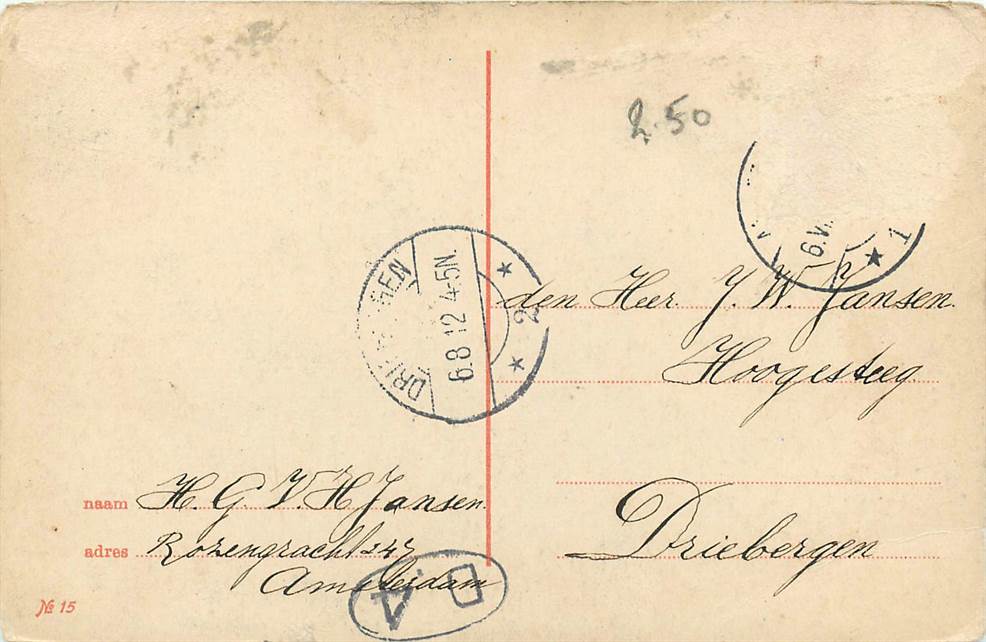 2.50
6.V
1
DRIEBERGEN
6.8 12 4-5N.
2
den Heer J. W. Jansen.
Hoogesteeg
Driebergen
naam H. G. V. H Jansen.
adres Rozengracht 247
Amsterdam
D A
№ 15